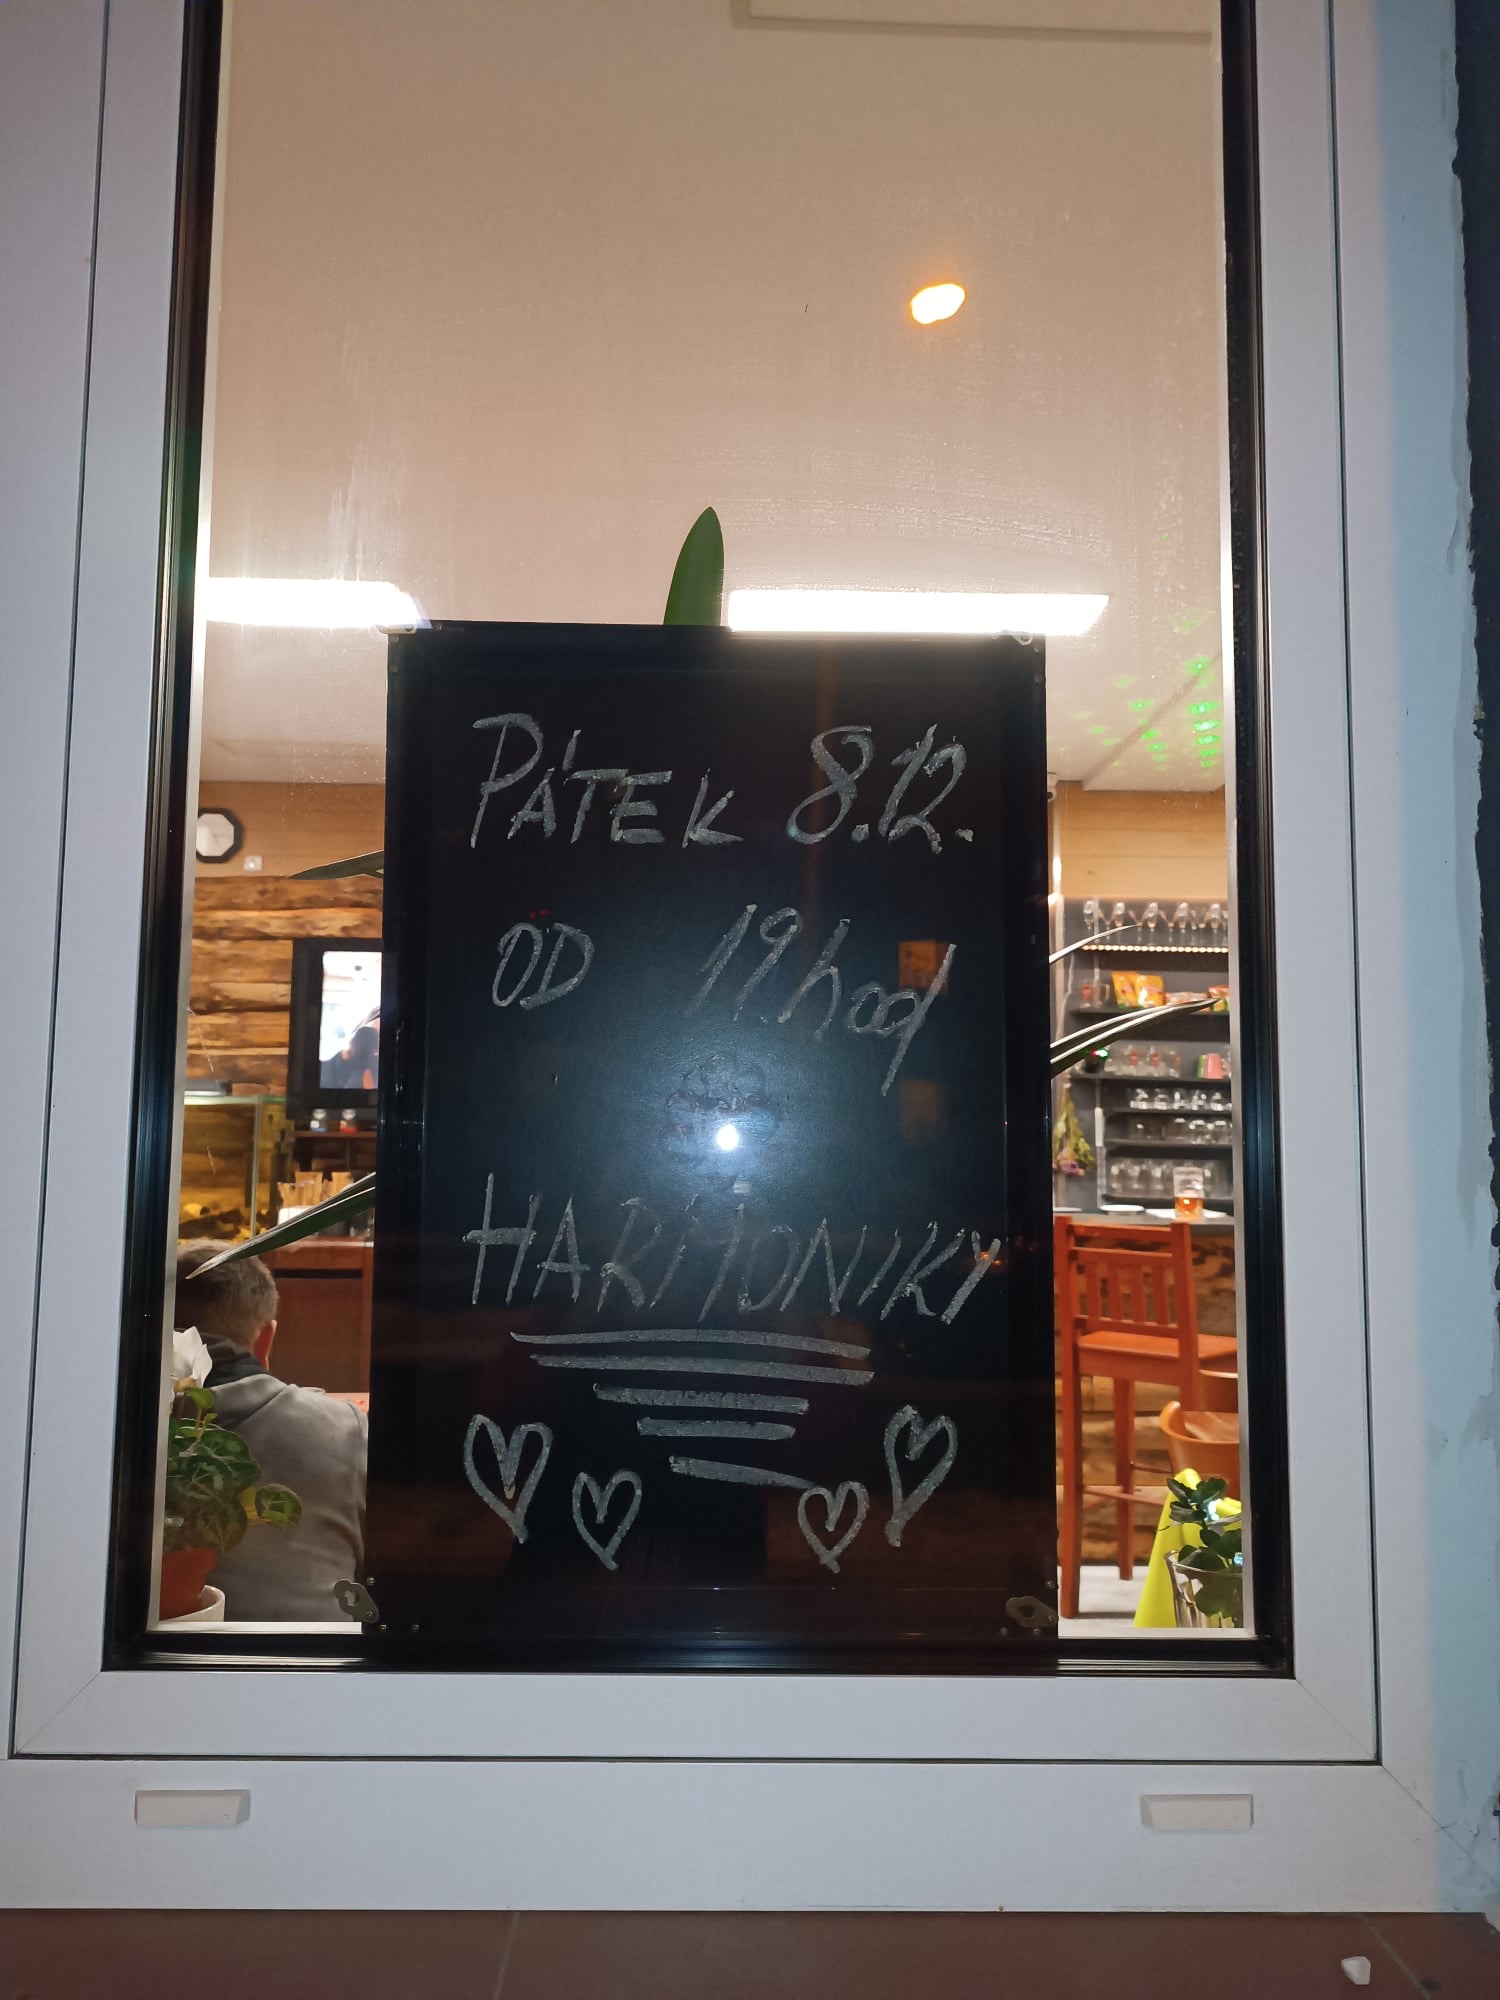 PÁTEK 8.12.
OD 19.hod
HARMONIKY